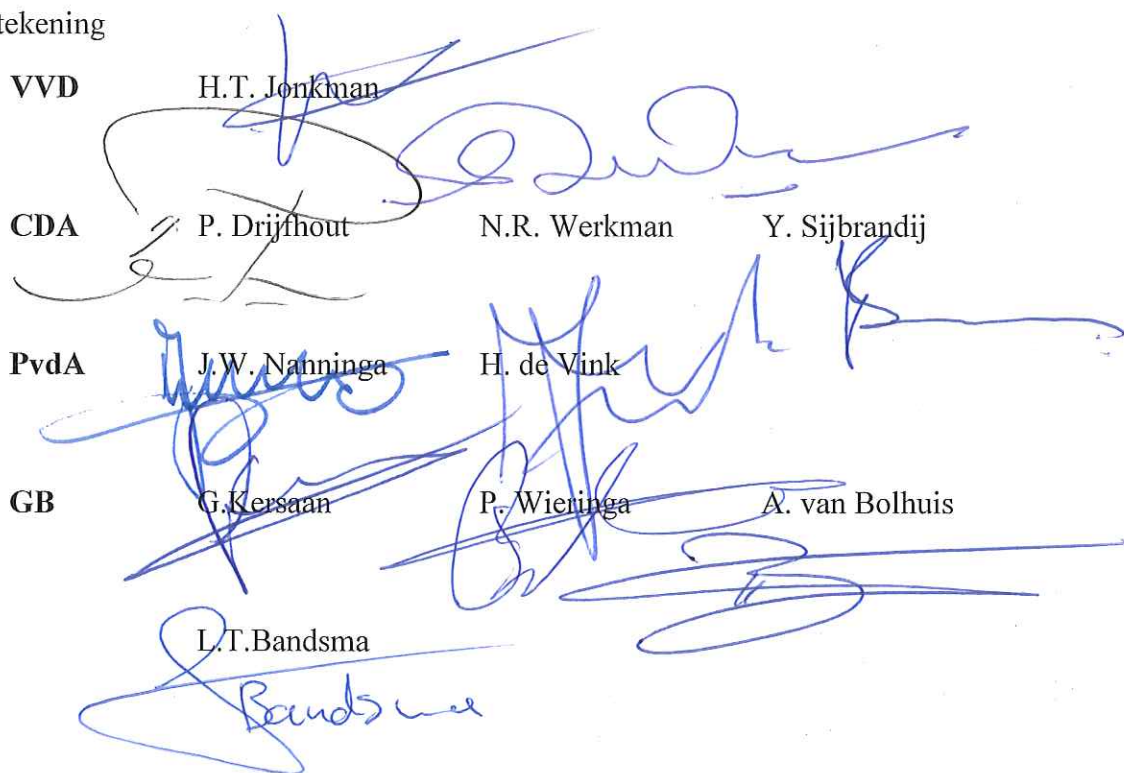 tekening
VVD H.T. Jonkman
CDA P. Drijfhout N.R. Werkman Y. Sijbrandij
PvdA J.W. Nanninga H. de Vink
GB G.Kersaan P. Wieringa A. van Bolhuis
L.T.Bandsma
Bandsma